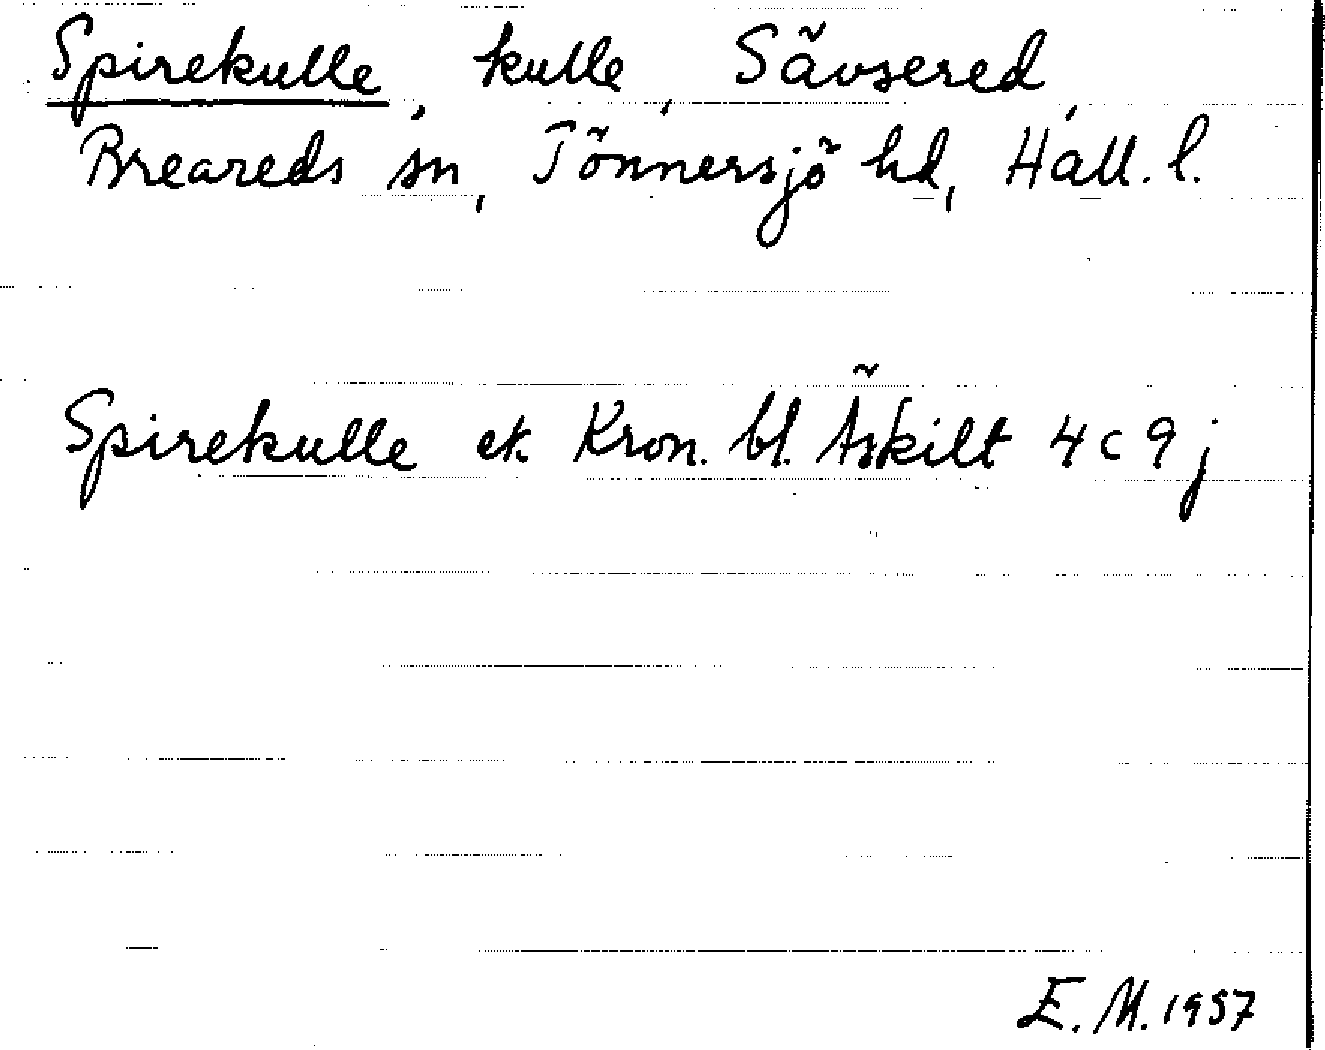 Spirekulle, kulle, Sävsered,
Breareds sn, Tönnersjö hd, Hall. l.
Spirekulle ek. Kron. bl. Äskilt 4c9j
E. M. 1957